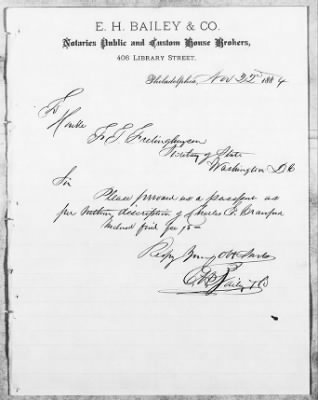 E. H. BAILEY & CO.
Notaries Public and Custom House Brokers,
406 LIBRARY STREET.
Philadelphia, Nov 22nd 1884
To
Honble
F. T. Frelinghuysen
Secretary of State
Washington D C
Sir
Please forward us a passport as
per within description of Charles
Inclosed find for
Respy Your Obt Servts
E H Bailey & Co